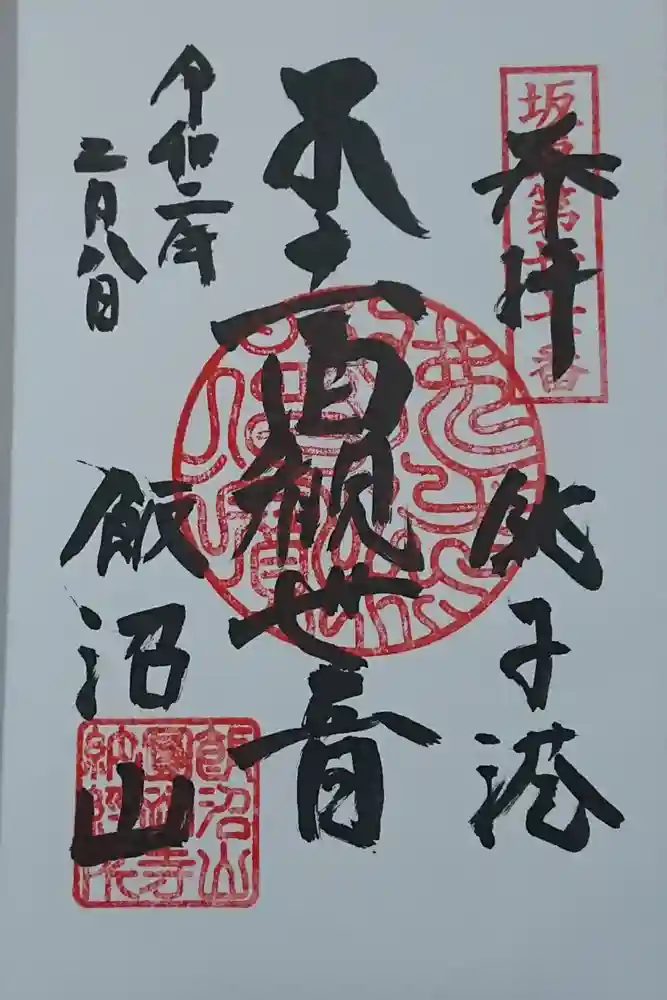 坂東第廿七番
奉拝
銚子港
本十一面観世音
令和二年
二月八日
飯沼山
飯沼山
圓福寺